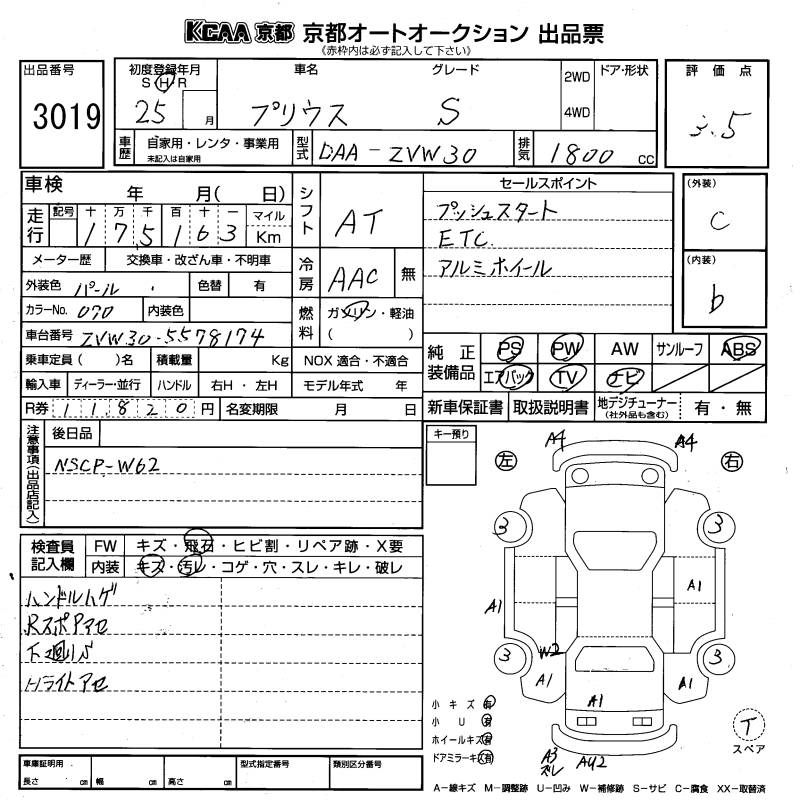 KCAA 京都 京都オートオークション 出品票
《赤枠内は必ず記入して下さい》
出品番号 3019
初度登録年月 S H R 25 月
車名 プリウス グレード S
2WD 4WD ドア・形状
評価点 3.5
車歴 自家用・レンタ・事業用 未記入は自家用
型式 DAA-ZVW30
排気 1800 CC
車検 年 月( 日)
走行 記号 十 万 千 百 十 一 マイル Km
175163
メーター歴 交換車・改ざん車・不明車
外装色 パール 色替 有
カラーNo. 070 内装色
車台番号 ZVW30-5578174
乗車定員( )名 積載量 Kg
輸入車 ディーラー・並行 ハンドル 右H・左H
R券 11820円 名変期限 月 日
シフト AT
冷房 AAC 無
燃料 ガソリン・軽油 ( )
NOX 適合・不適合
モデル年式 年
セールスポイント
プッシュスタート
ETC.
アルミホイール
(外装) C
(内装) b
純正装備品 PS PW AW サンルーフ ABS
エアバック TV ナビ
新車保証書 取扱説明書 地デジチューナー (社外品も含む) 有・無
注意事項(出品店記入) 後日品
NSCP-W62
検査員記入欄 FW キズ・飛石・ヒビ割・リペア跡・X要
内装 キズ・汚レ・コゲ・穴・スレ・キレ・破レ
ハンドルハゲ
RスポPアセ
下廻りS
Hライトアセ
キー預り
左 右
A4 A4
3 3
A1 A1
3 W2 3
A1 A1 A1
A3 ズレ AU2
小キズ 有
小U 有
ホイールキズ 有
ドアミラーキズ 有
T スペア
車庫証明用 長さ cm 幅 cm 高さ cm 型式指定番号 類別区分番号
A-線キズ M-調整跡 U-凹み W-補修跡 S-サビ C-腐食 XX-取替済